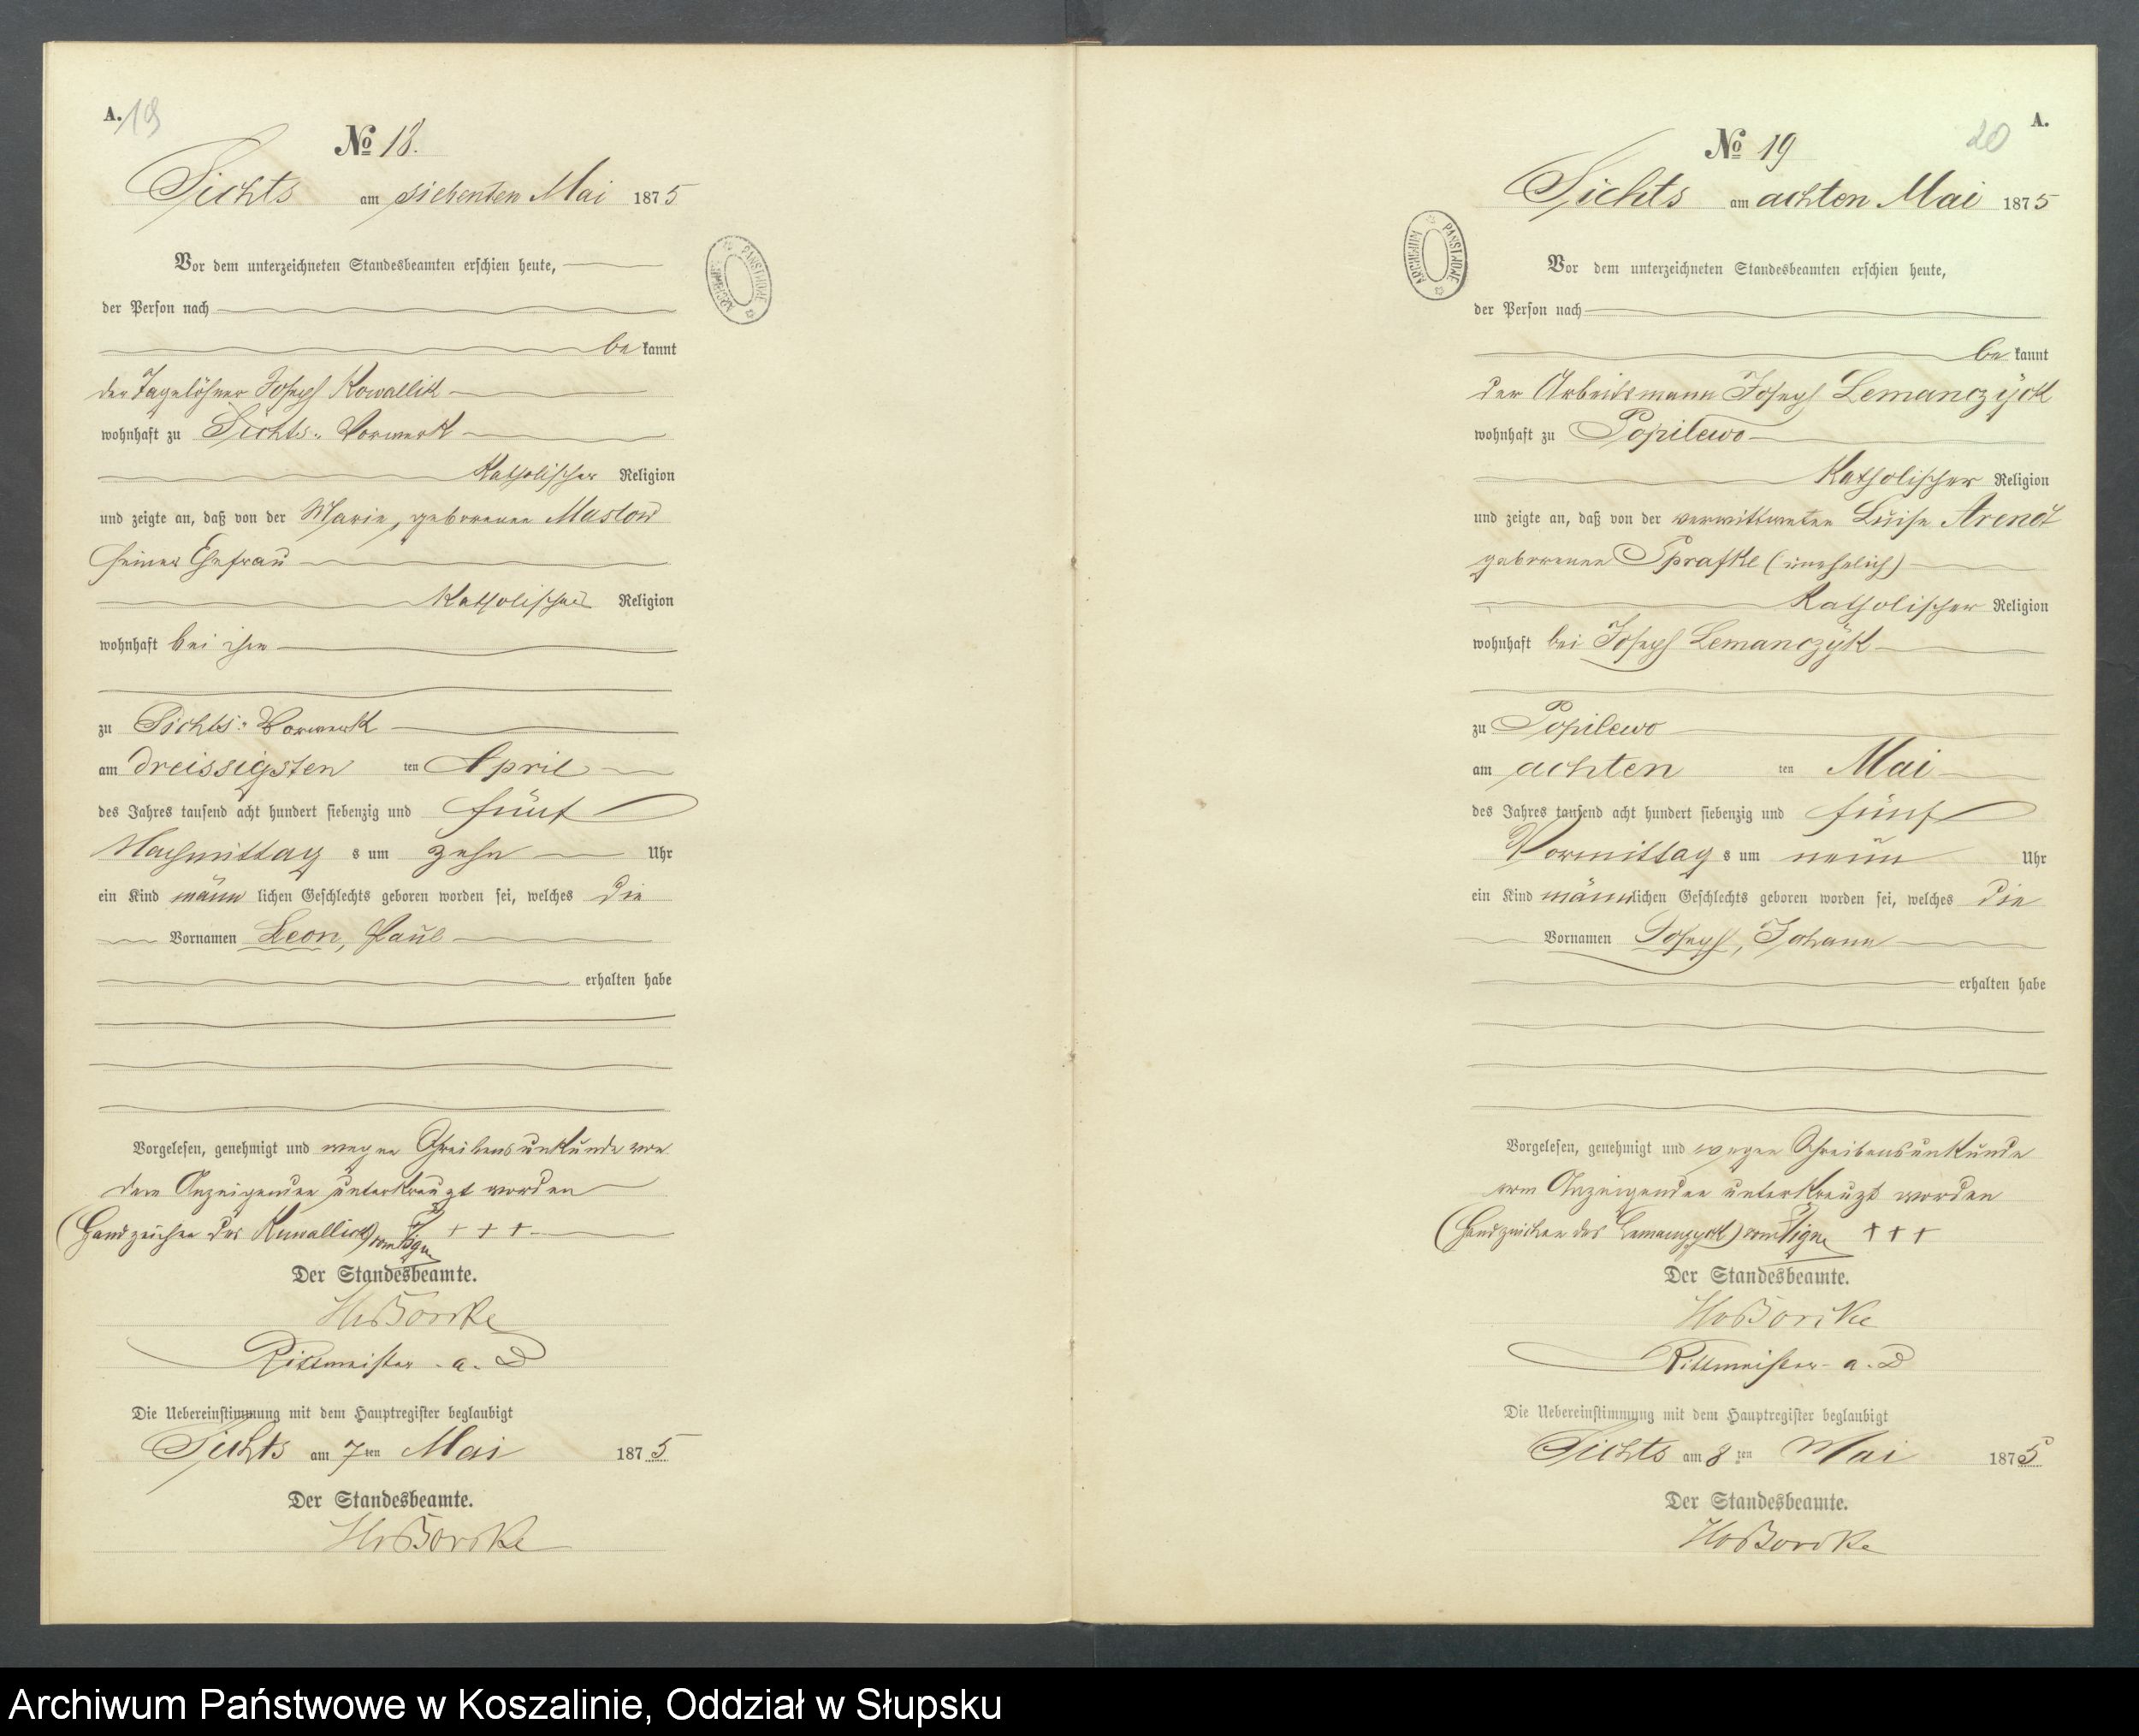 A.
19
No 18.
Sichts am siebenten Mai 1875
Vor dem unterzeichneten Standesbeamten erschien heute,
der Person nach
be kannt
der Tagelöhner Joseph Kowallik
wohnhaft zu Sichts-Vorwerk
Katholischer Religion
und zeigte an, daß von der Marie, geborenen Maslow
seiner Ehefrau
Katholischer Religion
wohnhaft bei ihm
zu Sichts-Vorwerk
am dreissigsten ten April
des Jahres tausend acht hundert siebenzig und fünf
Nachmittag s um zehn Uhr
ein Kind männ lichen Geschlechts geboren worden sei, welches die
Vornamen Leon, Paul
erhalten habe
Vorgelesen, genehmigt und wegen Schreibensunkunde von
dem Anzeigenden unterkreuzt worden
(Handzeichen des Kowallick) +++
Der Standesbeamte.
HvBorcke
Rittmeister a. D
Die Uebereinstimmung mit dem Hauptregister beglaubigt
Sichts am 7ten Mai 1875
Der Standesbeamte.
HvBorcke
20
A.
No 19
Sichts am achten Mai 1875
Vor dem unterzeichneten Standesbeamten erschien heute,
der Person nach
be kannt
der Arbeitsmann Joseph Lemanczyck
wohnhaft zu Popilewo
Katholischer Religion
und zeigte an, daß von der verwittweten Luise Arendt
geborenen Sprafke (unehelich)
Katholischer Religion
wohnhaft bei Joseph Lemanczyk
zu Popilewo
am achten ten Mai
des Jahres tausend acht hundert siebenzig und fünf
Vormittag s um neun Uhr
ein Kind männlichen Geschlechts geboren worden sei, welches die
Vornamen Joseph, Johann
erhalten habe
Vorgelesen, genehmigt und wegen Schreibensunkunde
vom Anzeigenden unterkreuzt worden
(Handzeichen des Lemanczyck) +++
Der Standesbeamte.
HvBorcke
Rittmeister a. D
Die Uebereinstimmung mit dem Hauptregister beglaubigt
Sichts am 8ten Mai 1875
Der Standesbeamte.
HvBorcke
ARCHIWUM PAŃSTWOWE
ARCHIWUM PAŃSTWOWE
Archiwum Państwowe w Koszalinie, Oddział w Słupsku